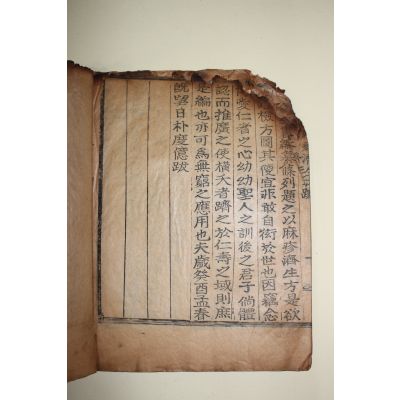 藥條列題之以麻疹濟生方是欲
檢方圖其便宜非敢自衒於世也因竊念
愛仁者之心幼幼聖人之訓後之君子倘體
認而推廣之使橫夭者躋之於仁壽之域則庶
是編也亦可為無窮之應用也夫歲癸酉孟春
旣望日朴度億跋